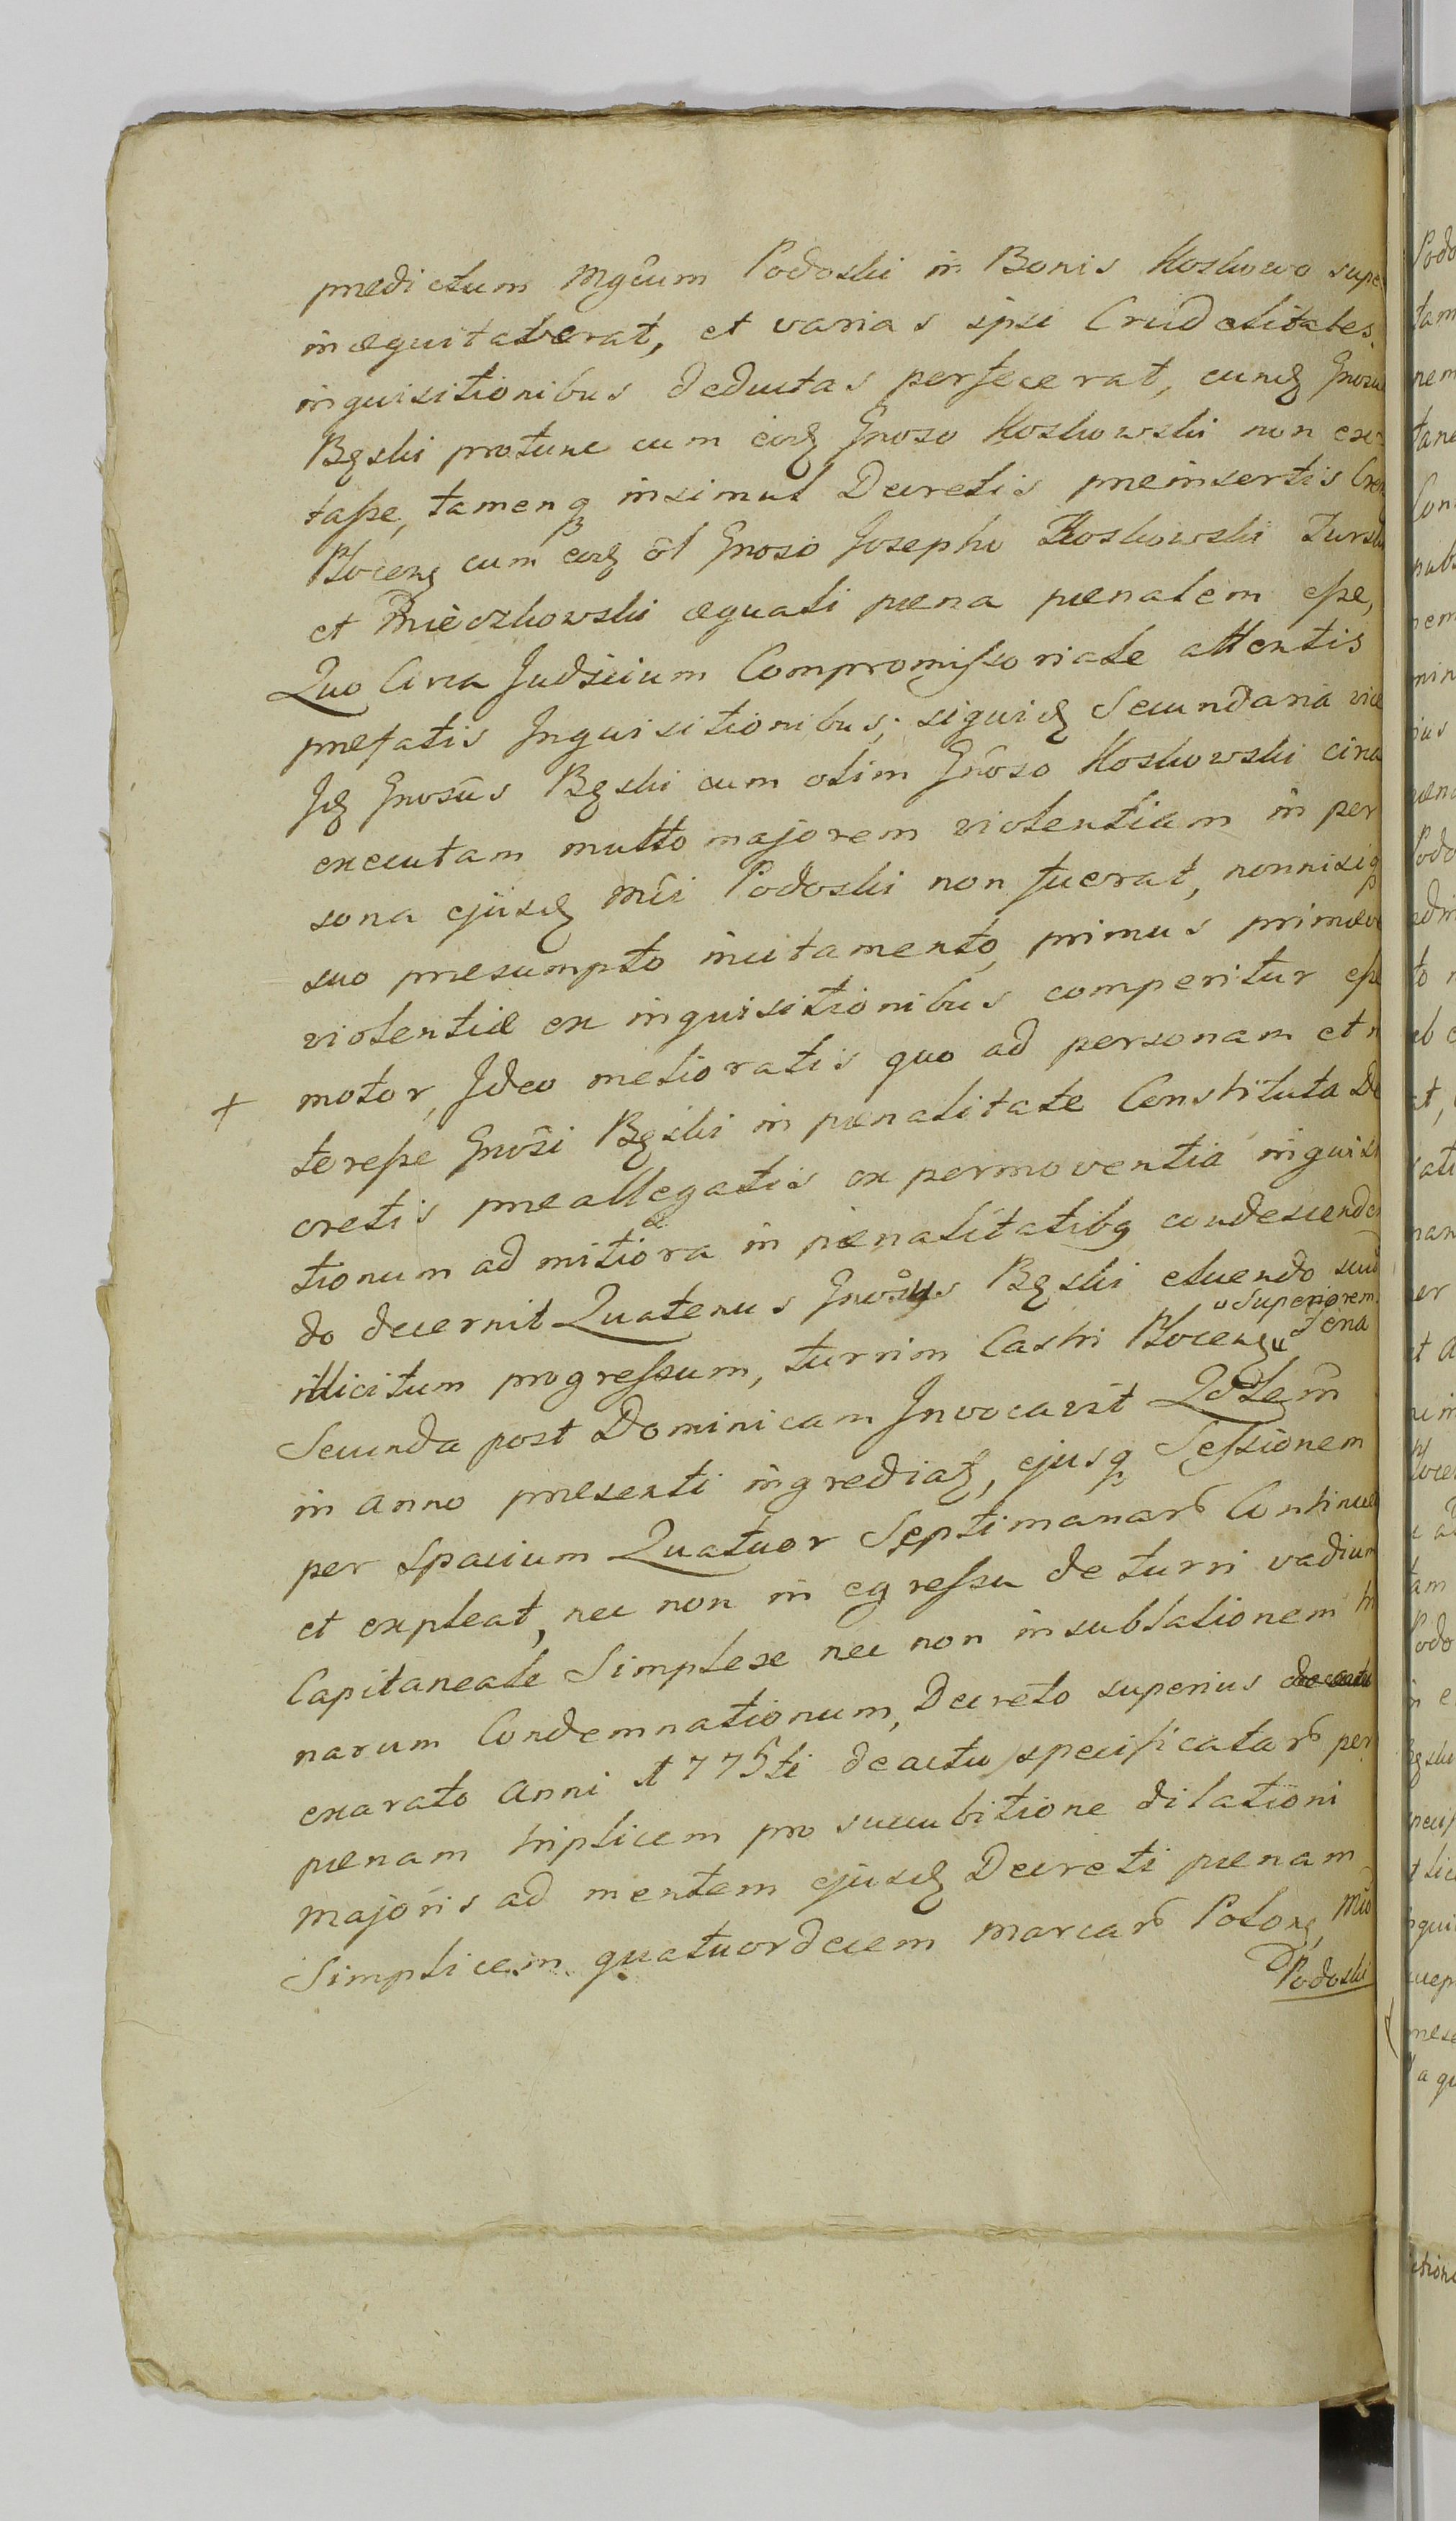 prædictum Mgcum Podoski in Bonis Koskowo supe
inæquitaverat, et varias ipsi Crudelitates
inquisitionibus deductas perfecerat, eundę Gnosu
Bęski protunc cum eodę Gnoso Koskowski non exi
taſse, tamenq insimul Decretis præinsertis Cren
Plocenę cum eodę ol Gnoso Josepho Koskowski Turski
et Mieczkowski æquali pœna pœnalem eſse,
Quo Circa Judicium Compromiſsoriale attentis
præfatis Inquisitionibus; siquidę Secundaria vice
Idę Gnosus Bęski cum olim Gnoso Koskowski circa
executam multo majorem violentiam in per
sona ejusdę Mci Podoski non fuerat, nonnisi q
suo præsumpto incitamento, primus primæva
violentiæ ex inquisitionibus comperitur eſse
+ motor, Ideo melioratis quo ad personam et in
tereſse Gnosi Bęski in pœnalitate Constituta De
cretis præallegatis ex permoventia inquisi
tionum ad mitiora in pœnalitatibq condescenden
do decernit Quatenus Gnosus Bęski eluendo suu
illicitum progreſsum, turrim Castri Plocenę superiorem feria
Secunda post Dominicam Invocavit Qdlem
in anno præsenti ingrediatę, ejusq Seſsionem
per spacium Quatuor Septimanar Continue
et expleat, nec non in egreſsu de turri vadium
Capitaneale Simplex nec non in sublationem tri
narum Condemnationum, Decreto superius
exarato Anni 1775ti de actu specificatar per
pœnam triplicem pro succubitione dilationi
majoris ad mentem ejusdę Decreti pœnam
Simplicem quatuordecem marcar Polonę Mco
Podoski